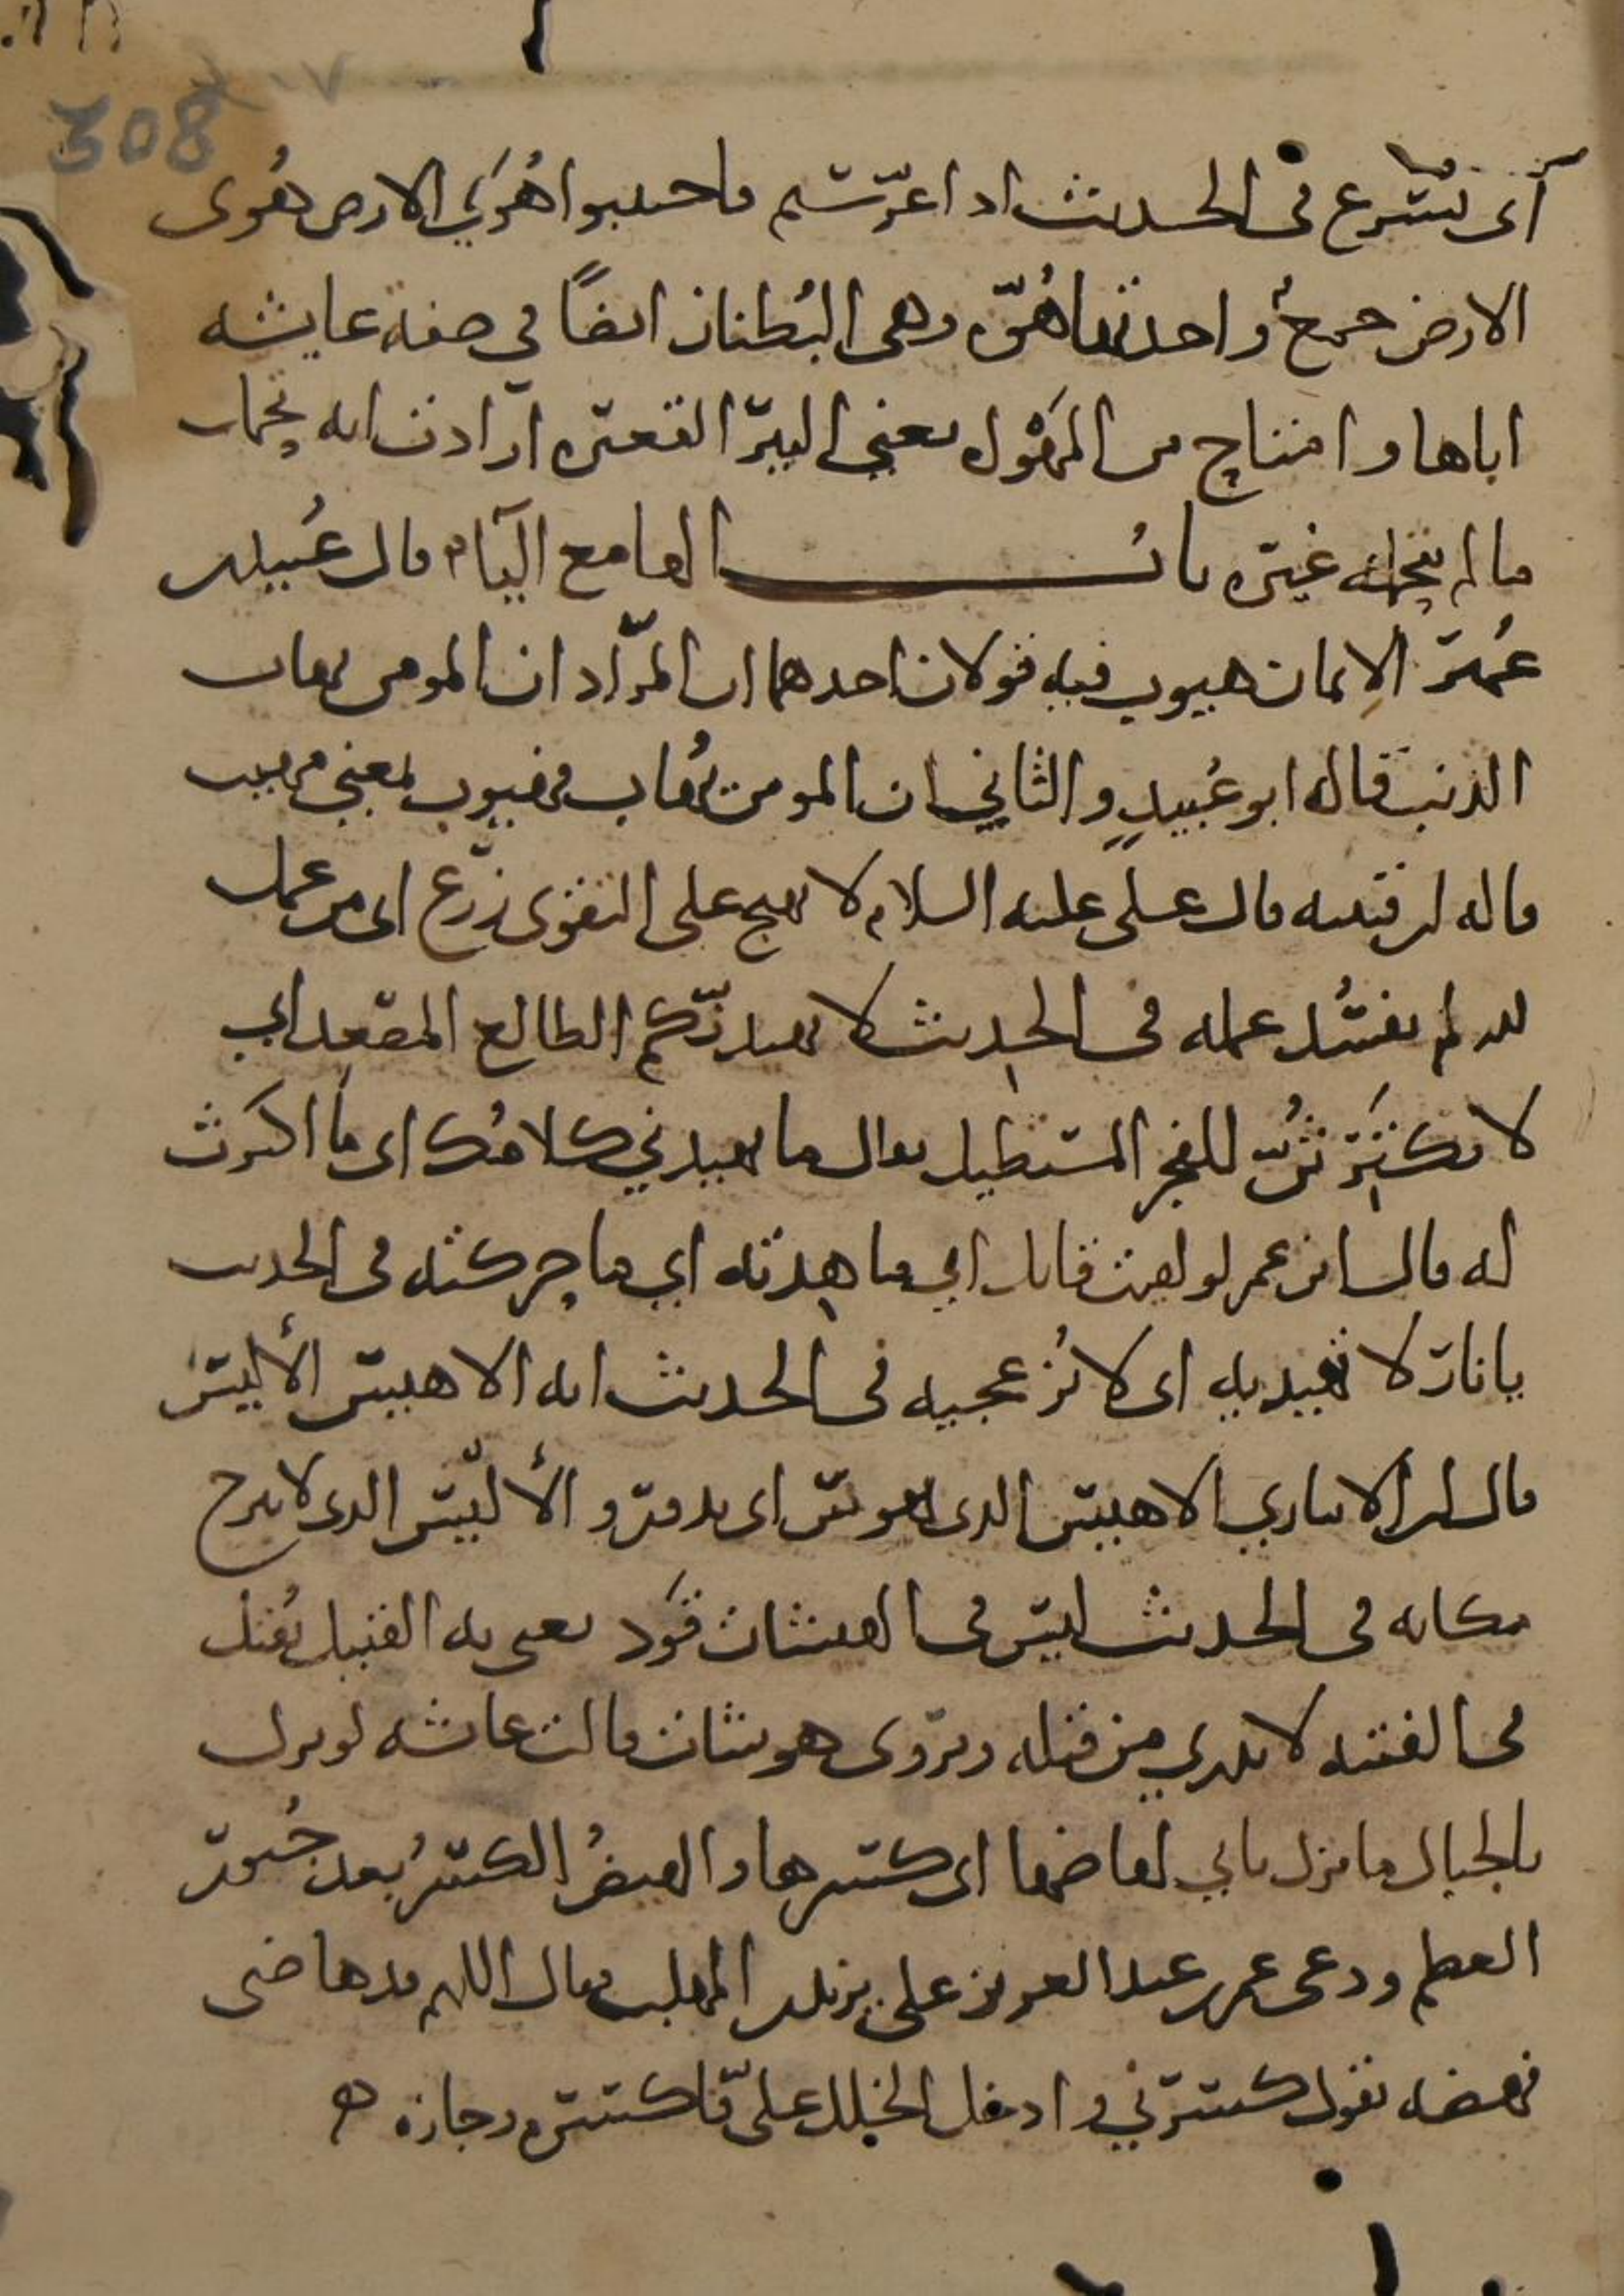 308
أى يسرع في الحديث اذا عرستم فاجتنبوا هُوَي الارض هُوى
الارض جمع واحدتها هُوّه وهي البُطنان ايضًا في صفة عايشه
اباها وامتاح من المَهْوَاه يعني البير القعيره ارادت انه تحمل
ما لم يتحمله غيره باب الها مع اليآء قال عُبيد بن
عُمير الإيمان هيوب فيه قولان احدهما ان المراد ان المومن يهاب
الذنب قاله ابو عُبيدٍ والثاني ان المومن يُهاب فهيوب بمعنى مهيب
قاله ابن قتيبه قال على عليه السلام لا يهيج على التقوى زرع اى من عمل
لله لم يفسُد عمله في الحديث لا يهيدنّكم الطالع المصعد اي
لا تكترثُنّ للفجر المستطيل يقال ما يهيدني كلامُك اى ما اكترث
له قال ابن عمر لو لقيت قاتل ابي ما هدته اي ما حركته في الحديث
يا نار لا تهيديه اى لا تُزعجيه في الحديث انه الاهيس الأليس
قال ابن الانباري الاهيس الذي يهوس اى يدور والأليس الذي لا يبرح
مكانه في الحديث ليس في الهيشات قَوَد يعنى به القتيل يُقتل
في الفتنه لا يدري من قتله ويروى هوشات قالت عائشه لو نزل
بالجبال ما نزل بابي لهاضها اى كسرها والهيضُ الكسرُ بعد جُبور
العظم ودعى عمر بن عبد العزيز على يزيد بن المهلب فقال اللهم قد هاضنى
فهضه يقول كسرني وادخل الخلل علىّ فاكسره وجازه